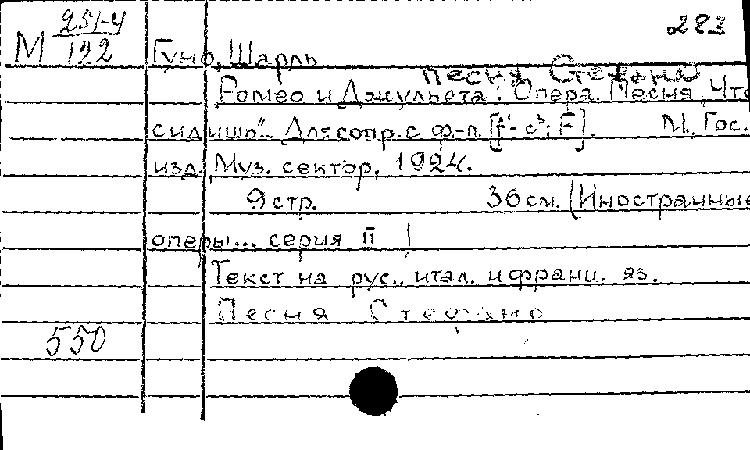 251-4 283
М 122 Гуно, Шарль
Песня Стефано
Ромео и Джульета: Опера. Песня „Что
сидишь“... Для сопр. с ф-п. [f¹- c³; F]. М., Гос.
изд. Муз. сектор, 1924.
9 стр. 36 см. (Иностранные
оперы... серия II
Текст на рус., итал. и франц. яз.
Песня Стефано
550